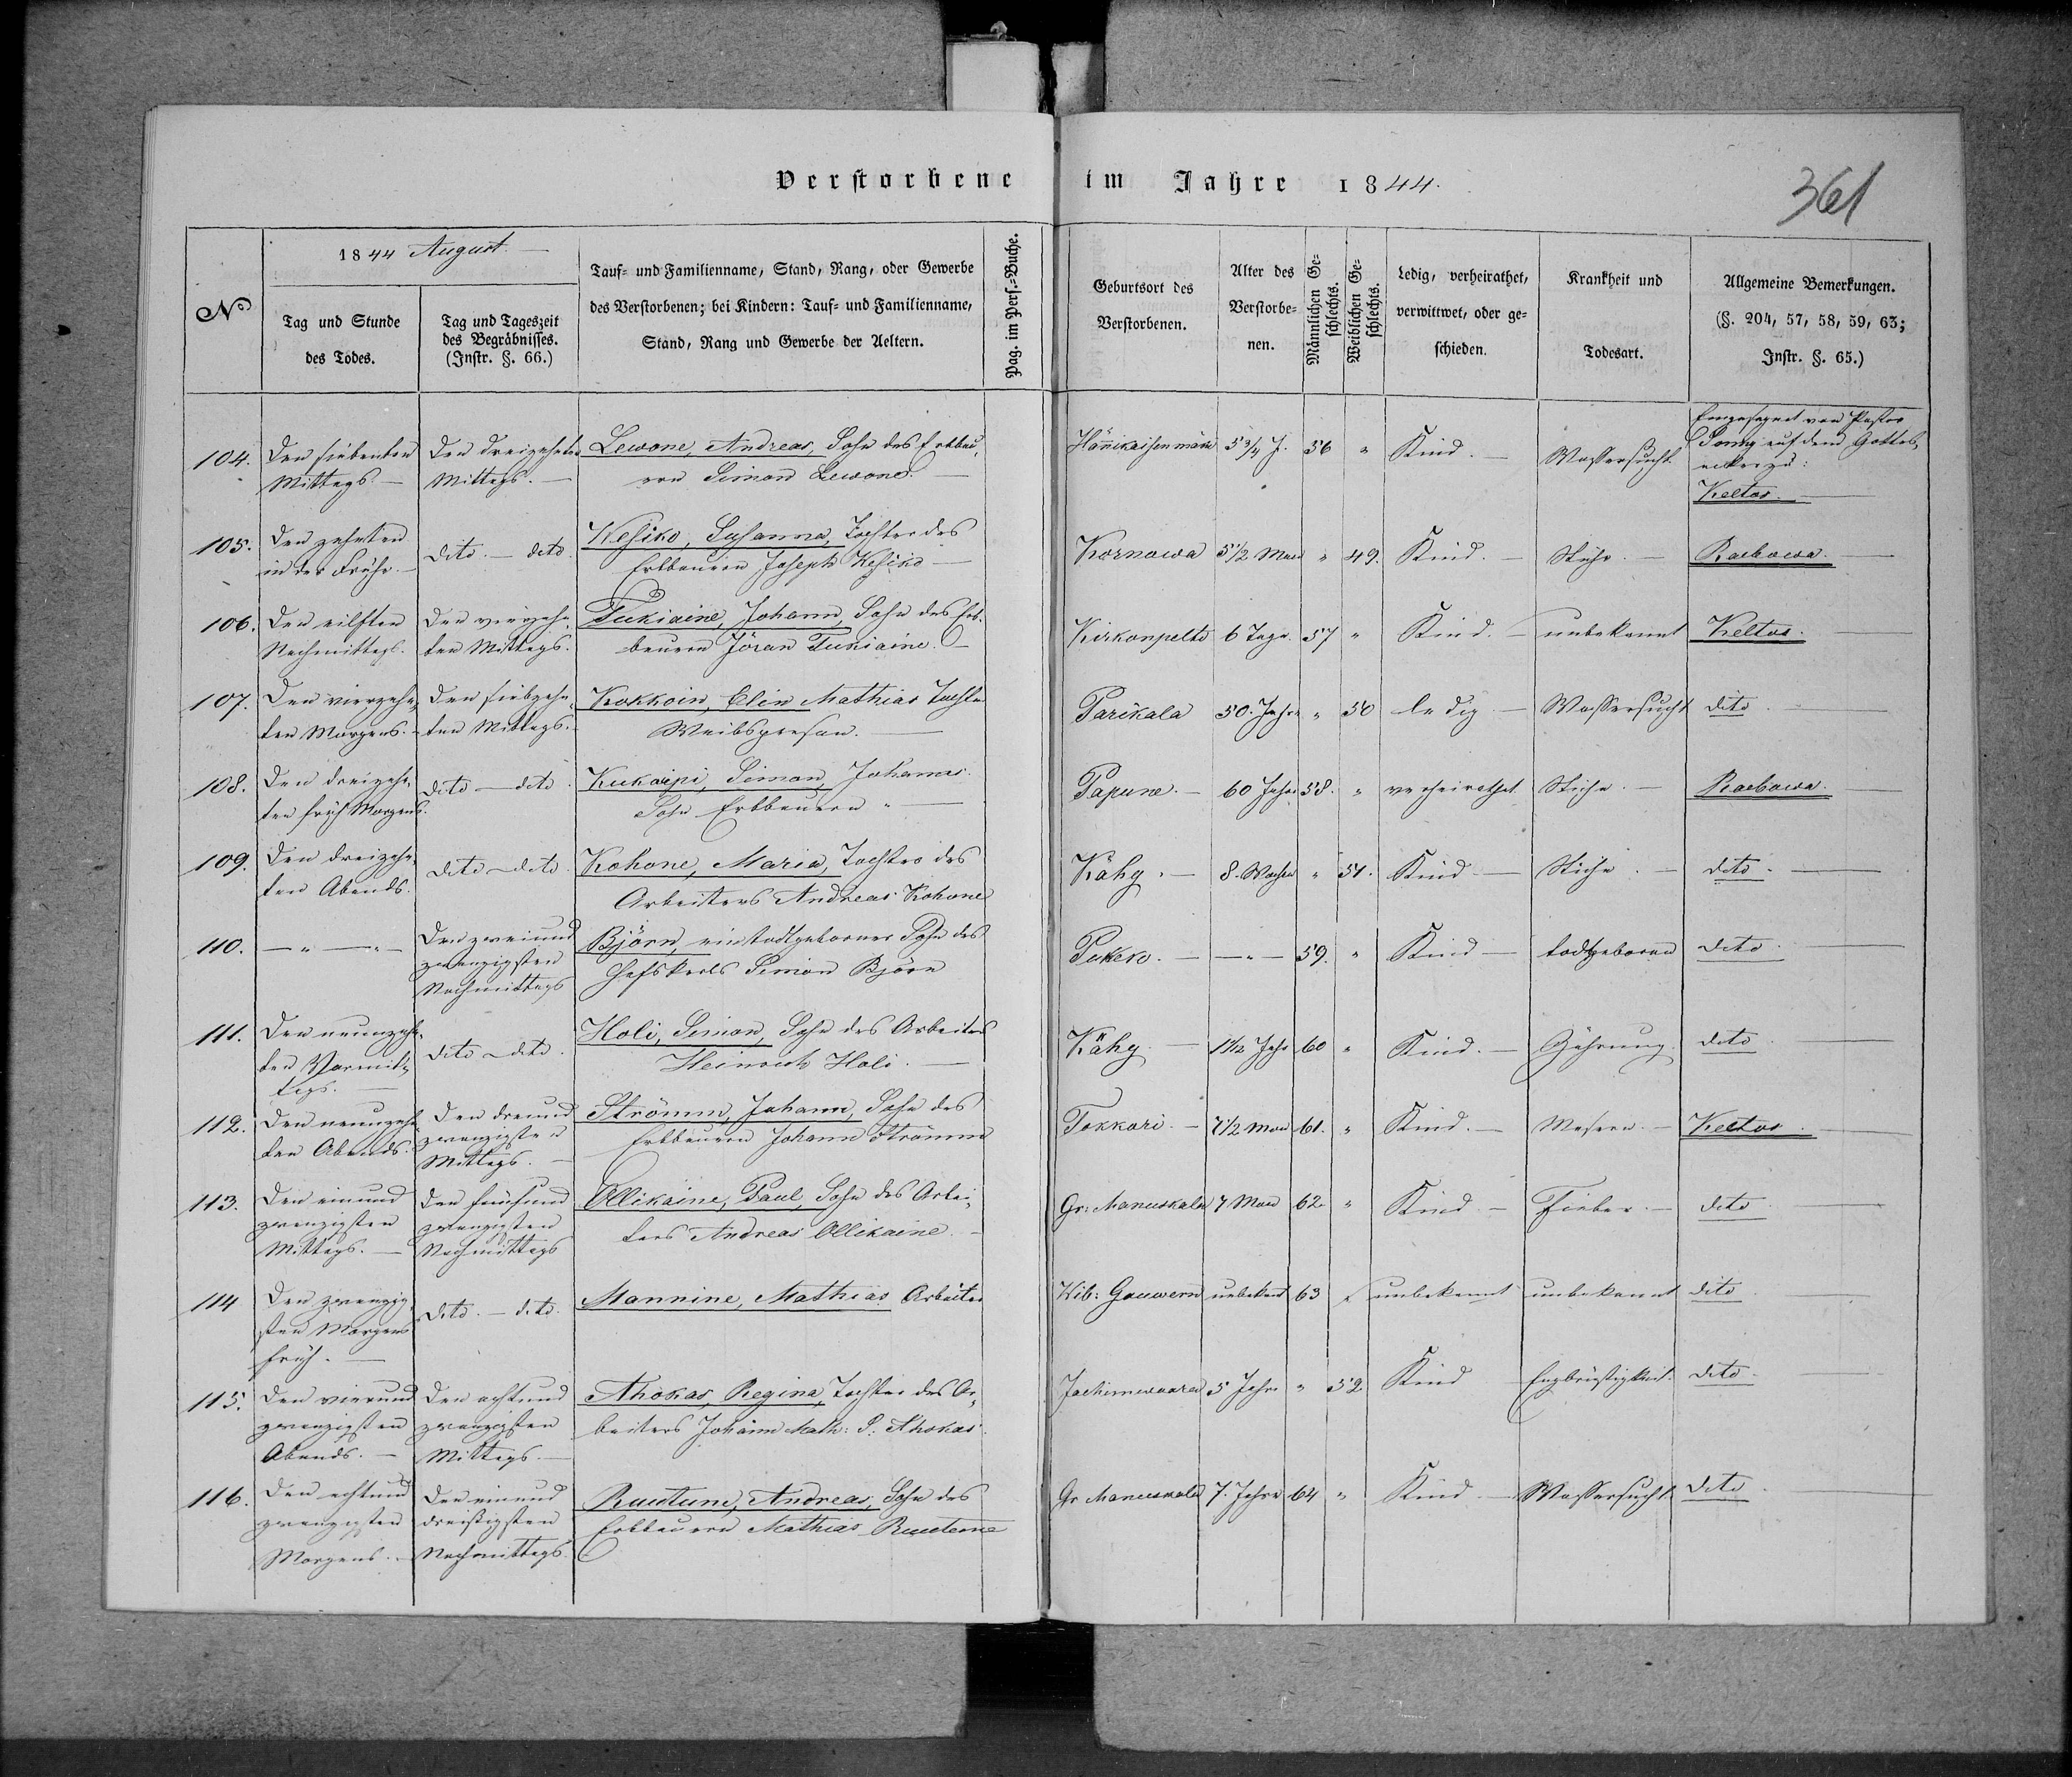 Verstorbene im Jahre 1844.
361
1844 August.
No
Tag und Stunde
des Todes.
Tag und Tageszeit
des Begräbnisses.
(Instr. §. 66.)
Tauf- und Familienname, Stand, Rang, oder Gewerbe
des Verstorbenen; bei Kindern: Tauf- und Familienname,
Stand, Rang und Gewerbe der Aeltern.
Pag. im Pers.-Buche.
Geburtsort des
Verstorbenen.
Alter des
Verstorbe-
nen.
Männlichen Ge-
schlechts.
Weiblichen Ge-
schlechts.
Ledig, verheirathet,
verwittwet, oder ge-
schieden.
Krankheit und
Todesart.
Allgemeine Bemerkungen.
(§. 204, 57, 58, 59, 63;
Instr. §. 65.)
104.
Den siebenten
Mittags. —
Den dreizehnten
Mittags. —
Lewone, Andreas, Sohn des Erbbau,
ern Simon Lewone. —
5 3/4 J.
56
"
Kind. —
Wassersucht.
Eingesegnet von Pastor
auf dem Gottes,
acker zu:
Keltos. —
105.
Den zehnten
in der Frühe. —
dito. — dito.
Kesiko, Susanna, Tochter des
Erbbauern Joseph Kesiko —
Kornowa
5 1/2 Mon
"
49.
Kind. —
—
Raebowa. —
106.
Den eilften
Nachmittags.
Den vierzehn,
ten Mittags.
Tukiaine, Johann, Sohn des Erb,
bauern Jöran Tukiaine. —
Kirkonpelto
6 Tage.
57
"
Kind. —
unbekannt
Keltos. —
107.
Den vierzehn,
ten Morgens. —
Den siebzehn,
ten Mittags.
Kokkoin, Elin Mathias Tochter
Weibsperson. —
Parikala
50. Jahre
"
50
ledig —
Wassersucht
dito. —
108.
Den dreizehn,
ten früh Morgens.
dito — dito.
Kukoipi, Simon, Johannes
Sohn Erbbauern " —
Papune. —
60 Jahre
58.
"
verheirathet
Stiche. —
Raebowa. —
109.
Den dreizehn,
ten Abends.
dito — dito
Kohone, Maria, Tochter des
Arbeiters Andreas Kohone
Kähy. —
8. Wochen
"
51.
Kind —
Stiche. —
dito. —
110.
— " — " —
Den zweiund
zwanzigsten
Nachmittags
Björn, ein todtgeborner Sohn des
Hofskerls Simon Björn
Pukero. —
— " —
59.
"
Kind —
todtgeboren
dito. —
111.
Den neunzehn,
ten Vormit,
tags. —
dito — dito.
Holi, Simon, Sohn des Arbeiters
Heinrich Holi. —
Kähy. —
60
"
Kind. —
Gährung.
dito —
112.
Den neunzehn
ten Abends.
Den dreiund
zwanzigsten
Mittags. —
Strömm, Johann, Sohn des
Erbbauern Johann Strömme
Tokkari. —
7 1/2 Mon
61.
"
Kind. —
Masern. —
Keltos. —
113.
Den einund
zwanzigsten
Mittags. —
Den fünfund
zwanzigsten
Nachmittags
Ollikaine, Paul, Sohn des Arbei,
ters Andreas Ollikaine. —
Gr: Manuskala
7 Mon
62.
"
Kind —
Fieber. —
dito —
114
Den zwanzig,
sten Morgens
früh. —
dito. — dito.
Mannine, Mathias Arbeiter
Wib: Gouwern
unbekant
63
"
unbekannt
unbekannt
dito —
115.
Den vierund
zwanzigsten
Abends. —
Den achtund
zwanzigsten
Mittags. —
Ahokas, Regina, Tochter des Ar,
beiters Johann Math: S. Ahokas.
Jachimwaara
5 Jahre
"
52
Kind
Engbrüstigkeit.
dito. —
116.
Den achtund
zwanzigsten
Morgens. —
Den einund
dreissigsten
Nachmittags.
Ruutune, Andreas, Sohn des
Erbbauern Mathias Ruutune
Gr Manuskala
7. Jahre
64
"
Kind —
Wassersucht
dito. —